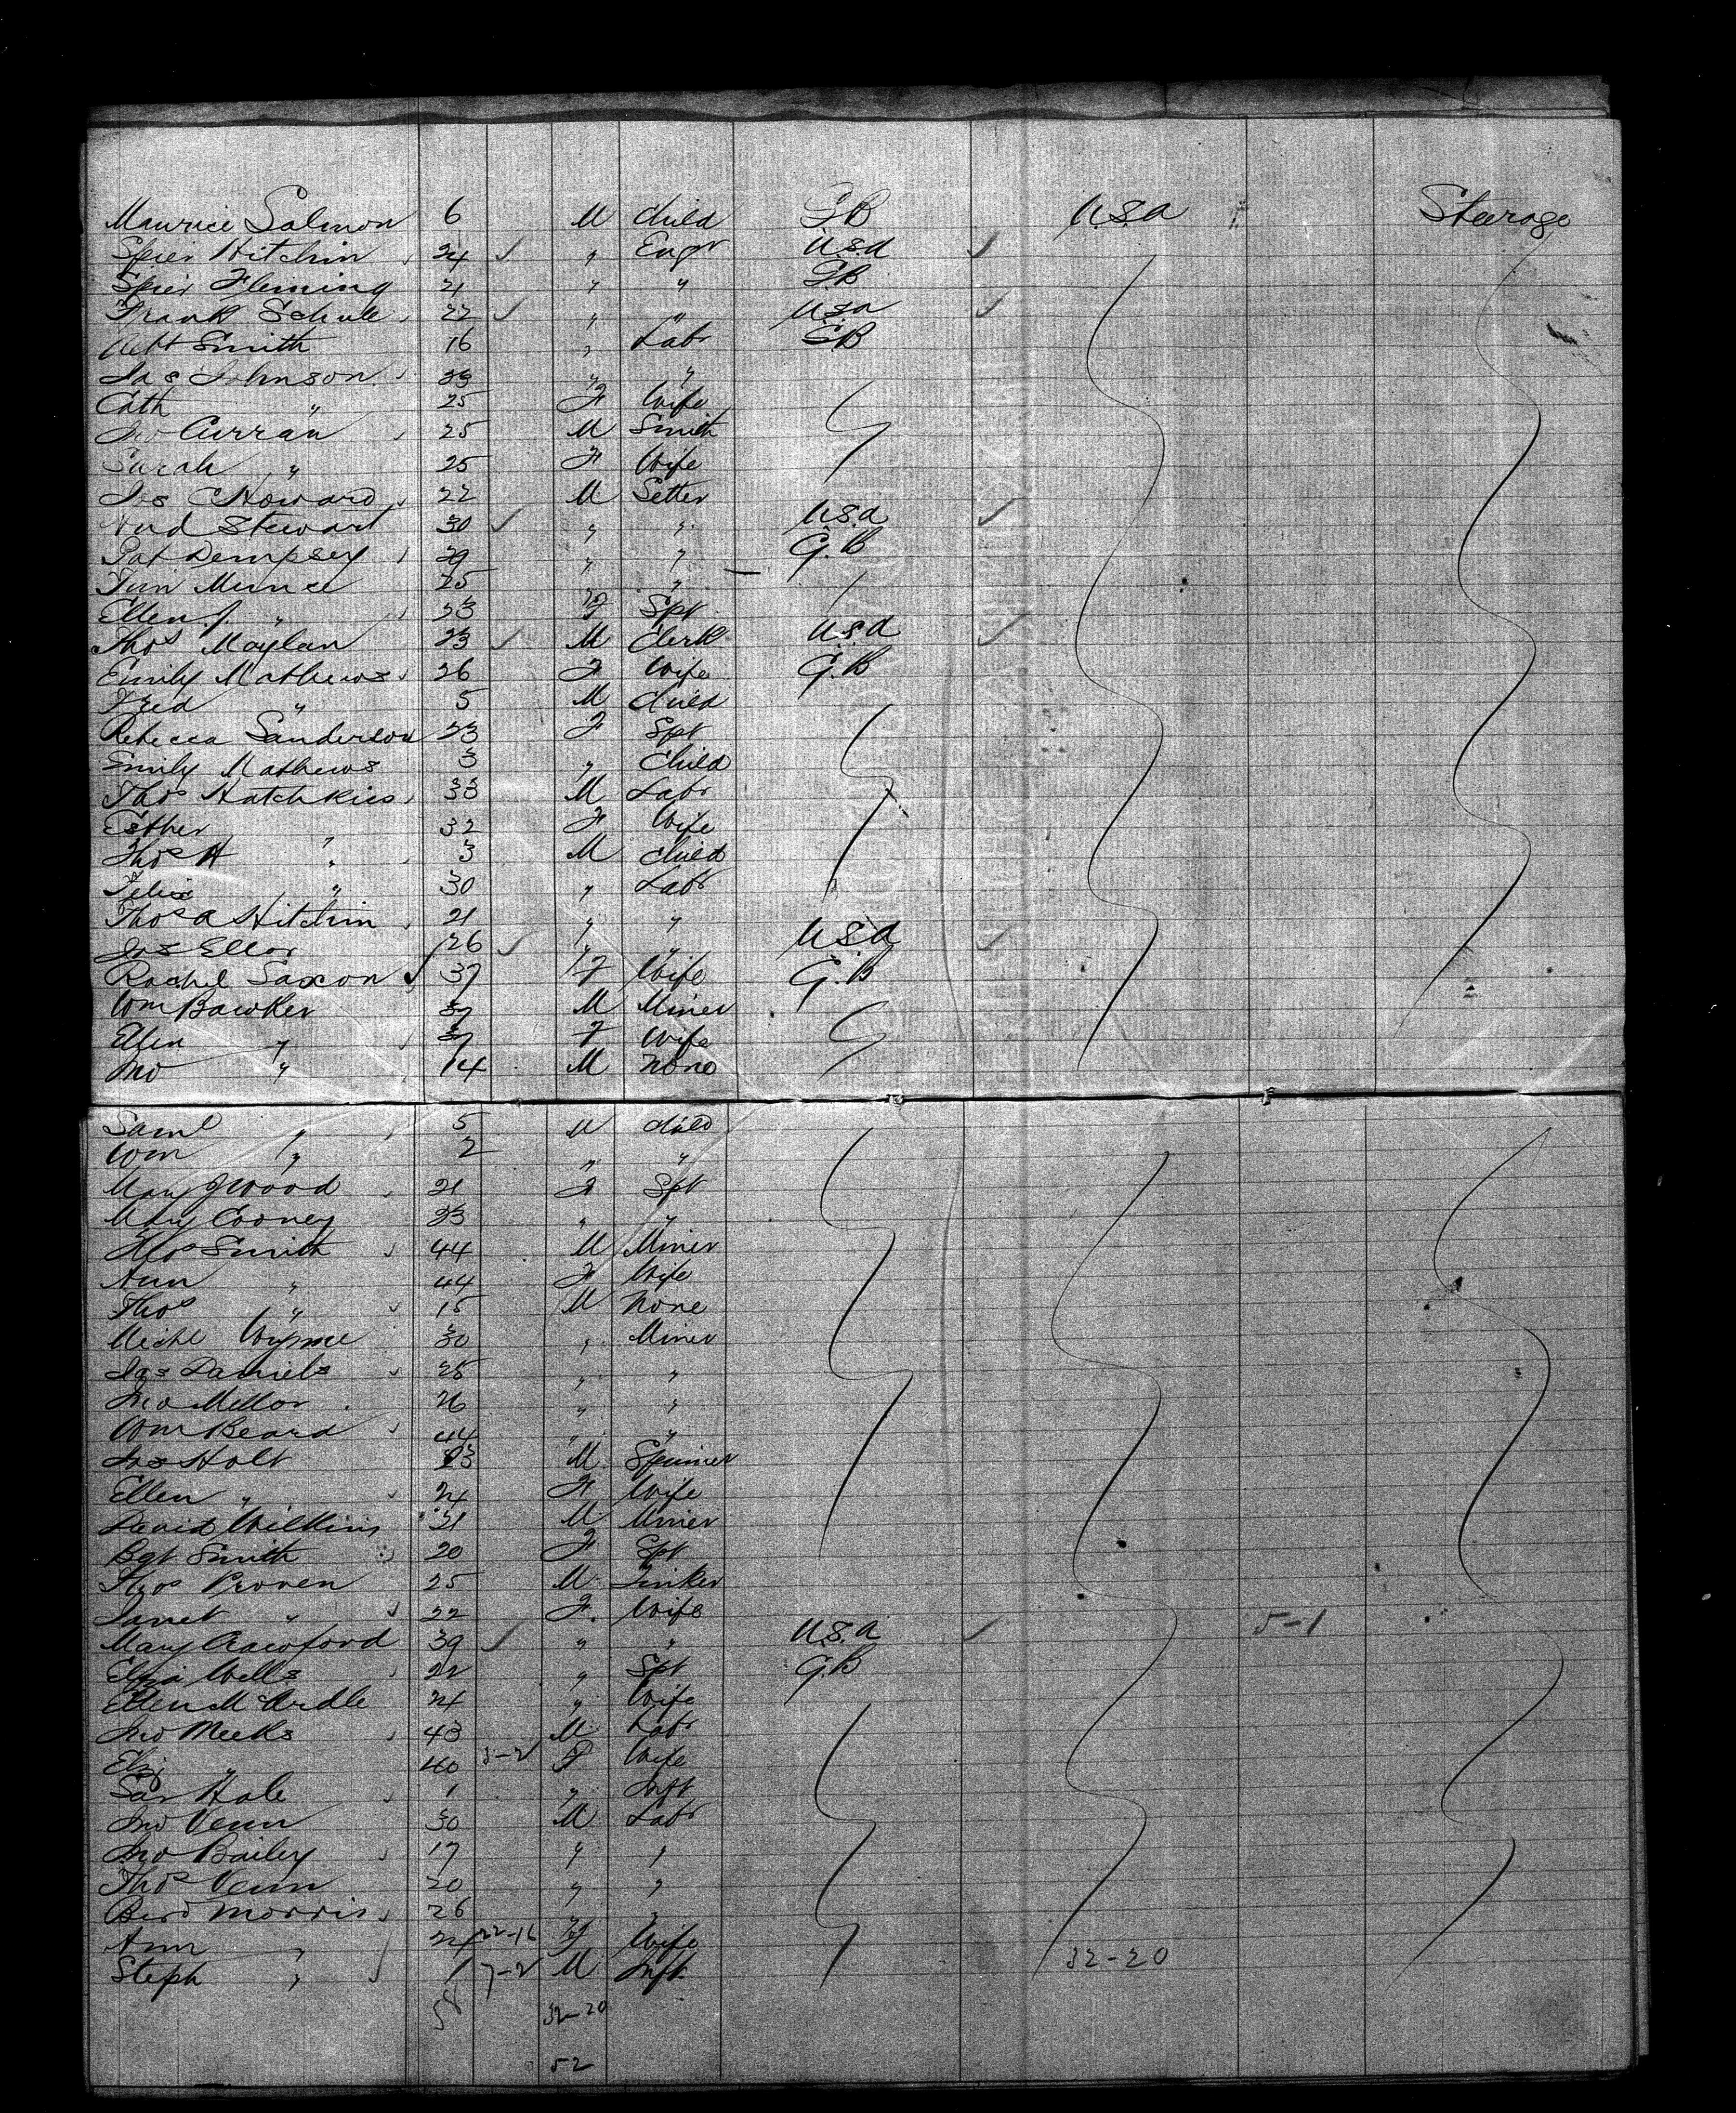 Maurice Salmon 6 M Child GB U.S.A Steerage
Spier Hitchin 24 ✓ " Engr U.S.A ✓
Spier Fleming 21 " " GB
Frank Schule 22 ✓ " " U.S.A ✓
Smith 16 " Labr GB
Jas Johnson 23 " "
Cath " 25 F Wife
Jno Curran 25 M Smith
Sarah " 25 F Wife
Jas C Howard 22 M Setter
Stewart 30 ✓ " " U.S.A ✓
Pat Dempsey 29 " " G.B
25 " "
Ellen J. " 23 F Spt
Thos Moylan 23 ✓ M Clerk U.S.A ✓
Emily Mathews 26 F Wife G.B
Fred " 5 M Child
Rebecca Sanderson 23 F Spt
Emily Mathews 3 " Child
Thos Hatchkies 33 M Labr
Esther " 32 F Wife
Thos H " 3 M Child
Felix " 30 " Labr
Thos A Hitchin 21 " "
Jas Ellor 26 ✓ " " U.S.A ✓
Rachel Saxon ✓ 37 F Wife G.B
Wm Bawker 37 M Miner
Ellen " 37 F Wife
Jno " 14 M None
Saml " 5 M Child
Wm " 2 " "
Mary J Wood 21 F Spt
Mary Cooney 23 " "
Thos Smith 44 M Miner
Ann " 44 F Wife
Thos " 15 M None
Michl Wynne 30 " Miner
Jas Daniels 25 " "
Jno Mellor 26 " "
Wm Beard 44 " "
Jas Holt 23 M Spinner
Ellen " 24 F Wife
David Wilkins 21 M Miner
Bgt Smith 20 F Spt
Thos Proven 25 M Tinker
Janet " 22 F. Wife
Mary Crawford 39 ✓ " " U.S.A ✓ 5-1
Eliza Wells 22 " Spt G.B
Ellen McArdle 24 " Wife
Jno Meeks 43 M Labr
Eliz " 40 3-2 F Wife
Sar Hale 1 " Inft
Jno Venn 30 M Labr
Jno Bailey 17 " "
Thos Venn 20 " "
Morris 26 " "
Ann " 24 22-16 F Wife
Steph " 1 7-2 M Inft 32-20
58 32-20
52